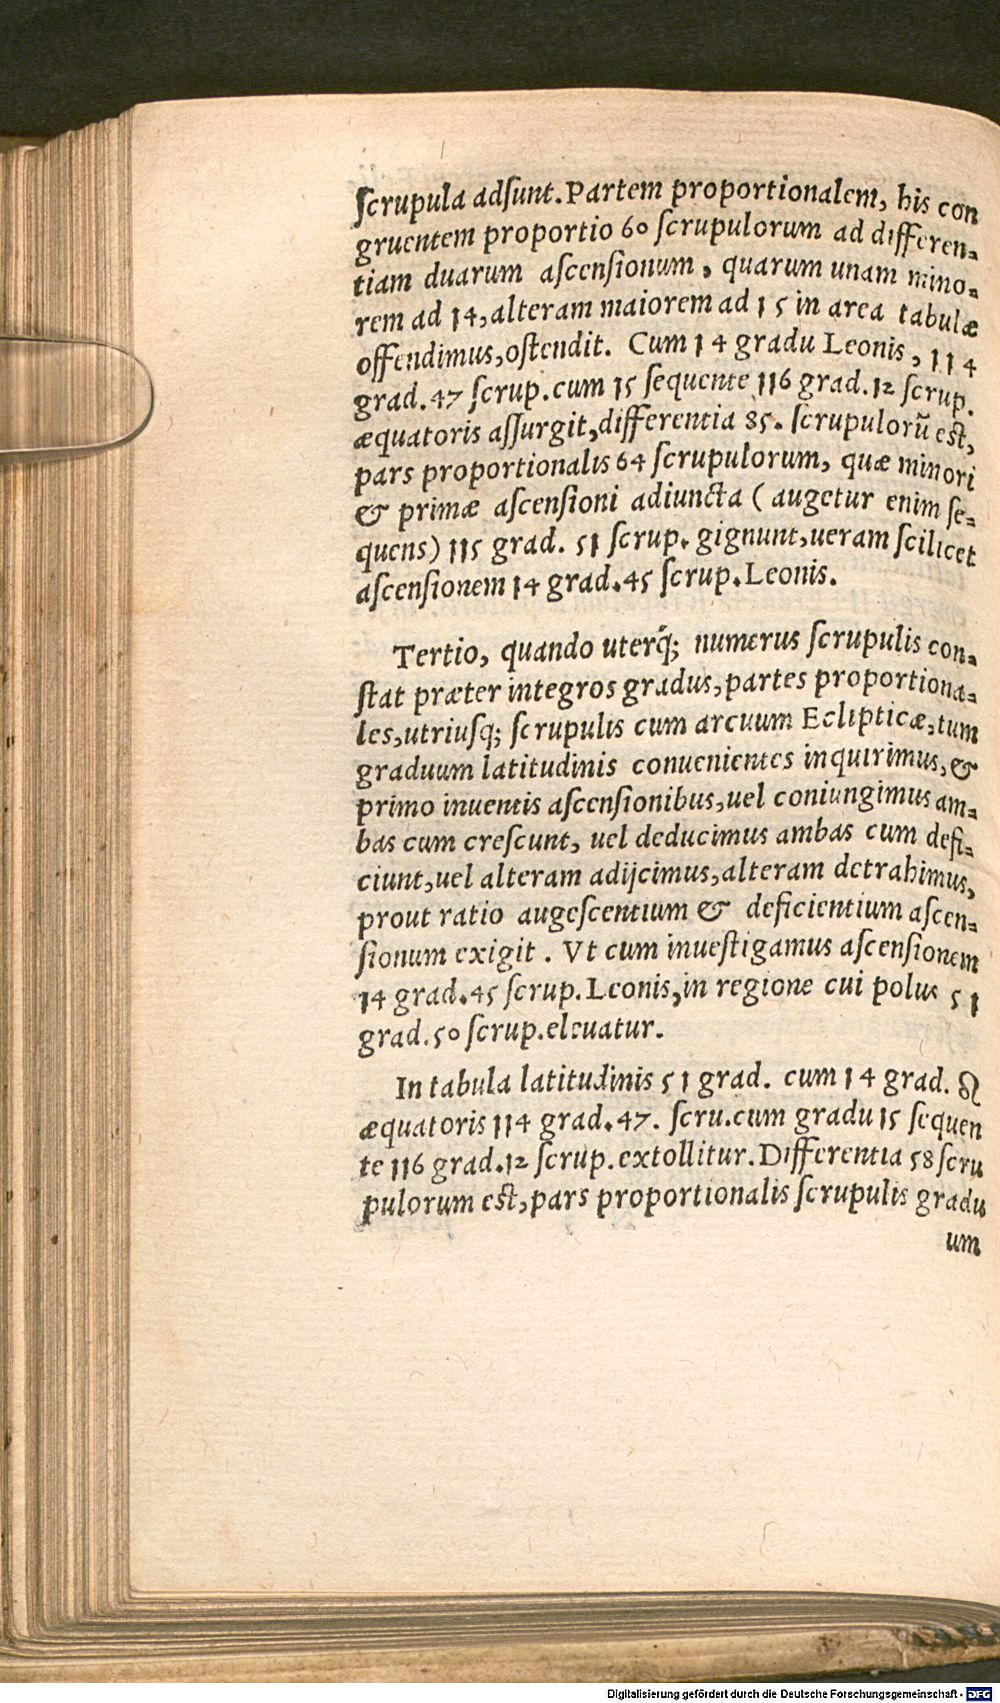 ſcrupula adſunt. Partem proportionalem, his con
gruentem proportio 60 ſcrupulorum ad differen-
tiam duarum aſcenſionum, quarum unam mino-
rem ad 14, alteram maiorem ad 15 in area tabulæ
offendimus, oſtendit. Cum 14 gradu Leonis, 114
grad. 47 ſcrup. cum 15 ſequente 116 grad. 12 ſcrup.
æquatoris aſſurgit, differentia 85. ſcrupulorũ eſt,
pars proportionalis 64 ſcrupulorum, quæ minori
& primæ aſcenſioni adiuncta ( augetur enim ſe-
quens) 115 grad. 51 ſcrup. gignunt, ueram ſcilicet
aſcenſionem 14 grad. 45 ſcrup. Leonis.
Tertio, quando uterq́; numerus ſcrupulis con-
ſtat præter integros gradus, partes proportiona-
les, utriuſq; ſcrupulis cum arcuum Eclipticæ, tum
graduum latitudinis conuenientes inquirimus, &
primo inuentis aſcenſionibus, uel coniungimus am-
bas cum creſcunt, uel deducimus ambas cum defi-
ciunt, uel alteram adijcimus, alteram detrahimus,
prout ratio augeſcentium & deficientium aſcen-
ſionum exigit. Vt cum inueſtigamus aſcenſionem
14 grad. 45 ſcrup. Leonis, in regione cui polus 51
grad. 50 ſcrup. eleuatur.
In tabula latitudinis 51 grad. cum 14 grad. ♌
æquatoris 114 grad. 47. ſcru. cum gradu 15 ſequen
te 116 grad. 12 ſcrup. extollitur. Differentia 58 ſcru
pulorum eſt, pars proportionalis ſcrupulis gradu
um
Digitalisierung gefördert durch die Deutsche Forschungsgemeinschaft - DFG